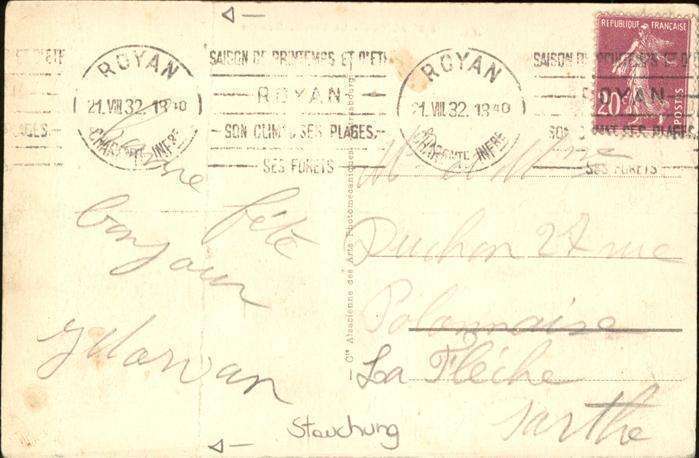 SAISON DE PRINTEMPS ET D'ETE
ROYAN
SON CLIMAT SES PLAGES.
SES FORETS
ROYAN
21.VII 32. 18 40
CHARENTE INFRE
ROYAN
21.VII 32. 18 40
CHARENTE INFRE
SAISON DE PRINTEMPS ET D'ETE
ROYAN
SON CLIMAT SES PLAGES
SES FORETS
REPUBLIQUE FRANÇAISE
20c
POSTES
Bonne fête
bonjour
Cie Alsacienne des Arts Photomécaniques, Strasbourg
M et Mme
Duchon 27 rue
Polonnaise
La Flèche
Sarthe
Stauchung